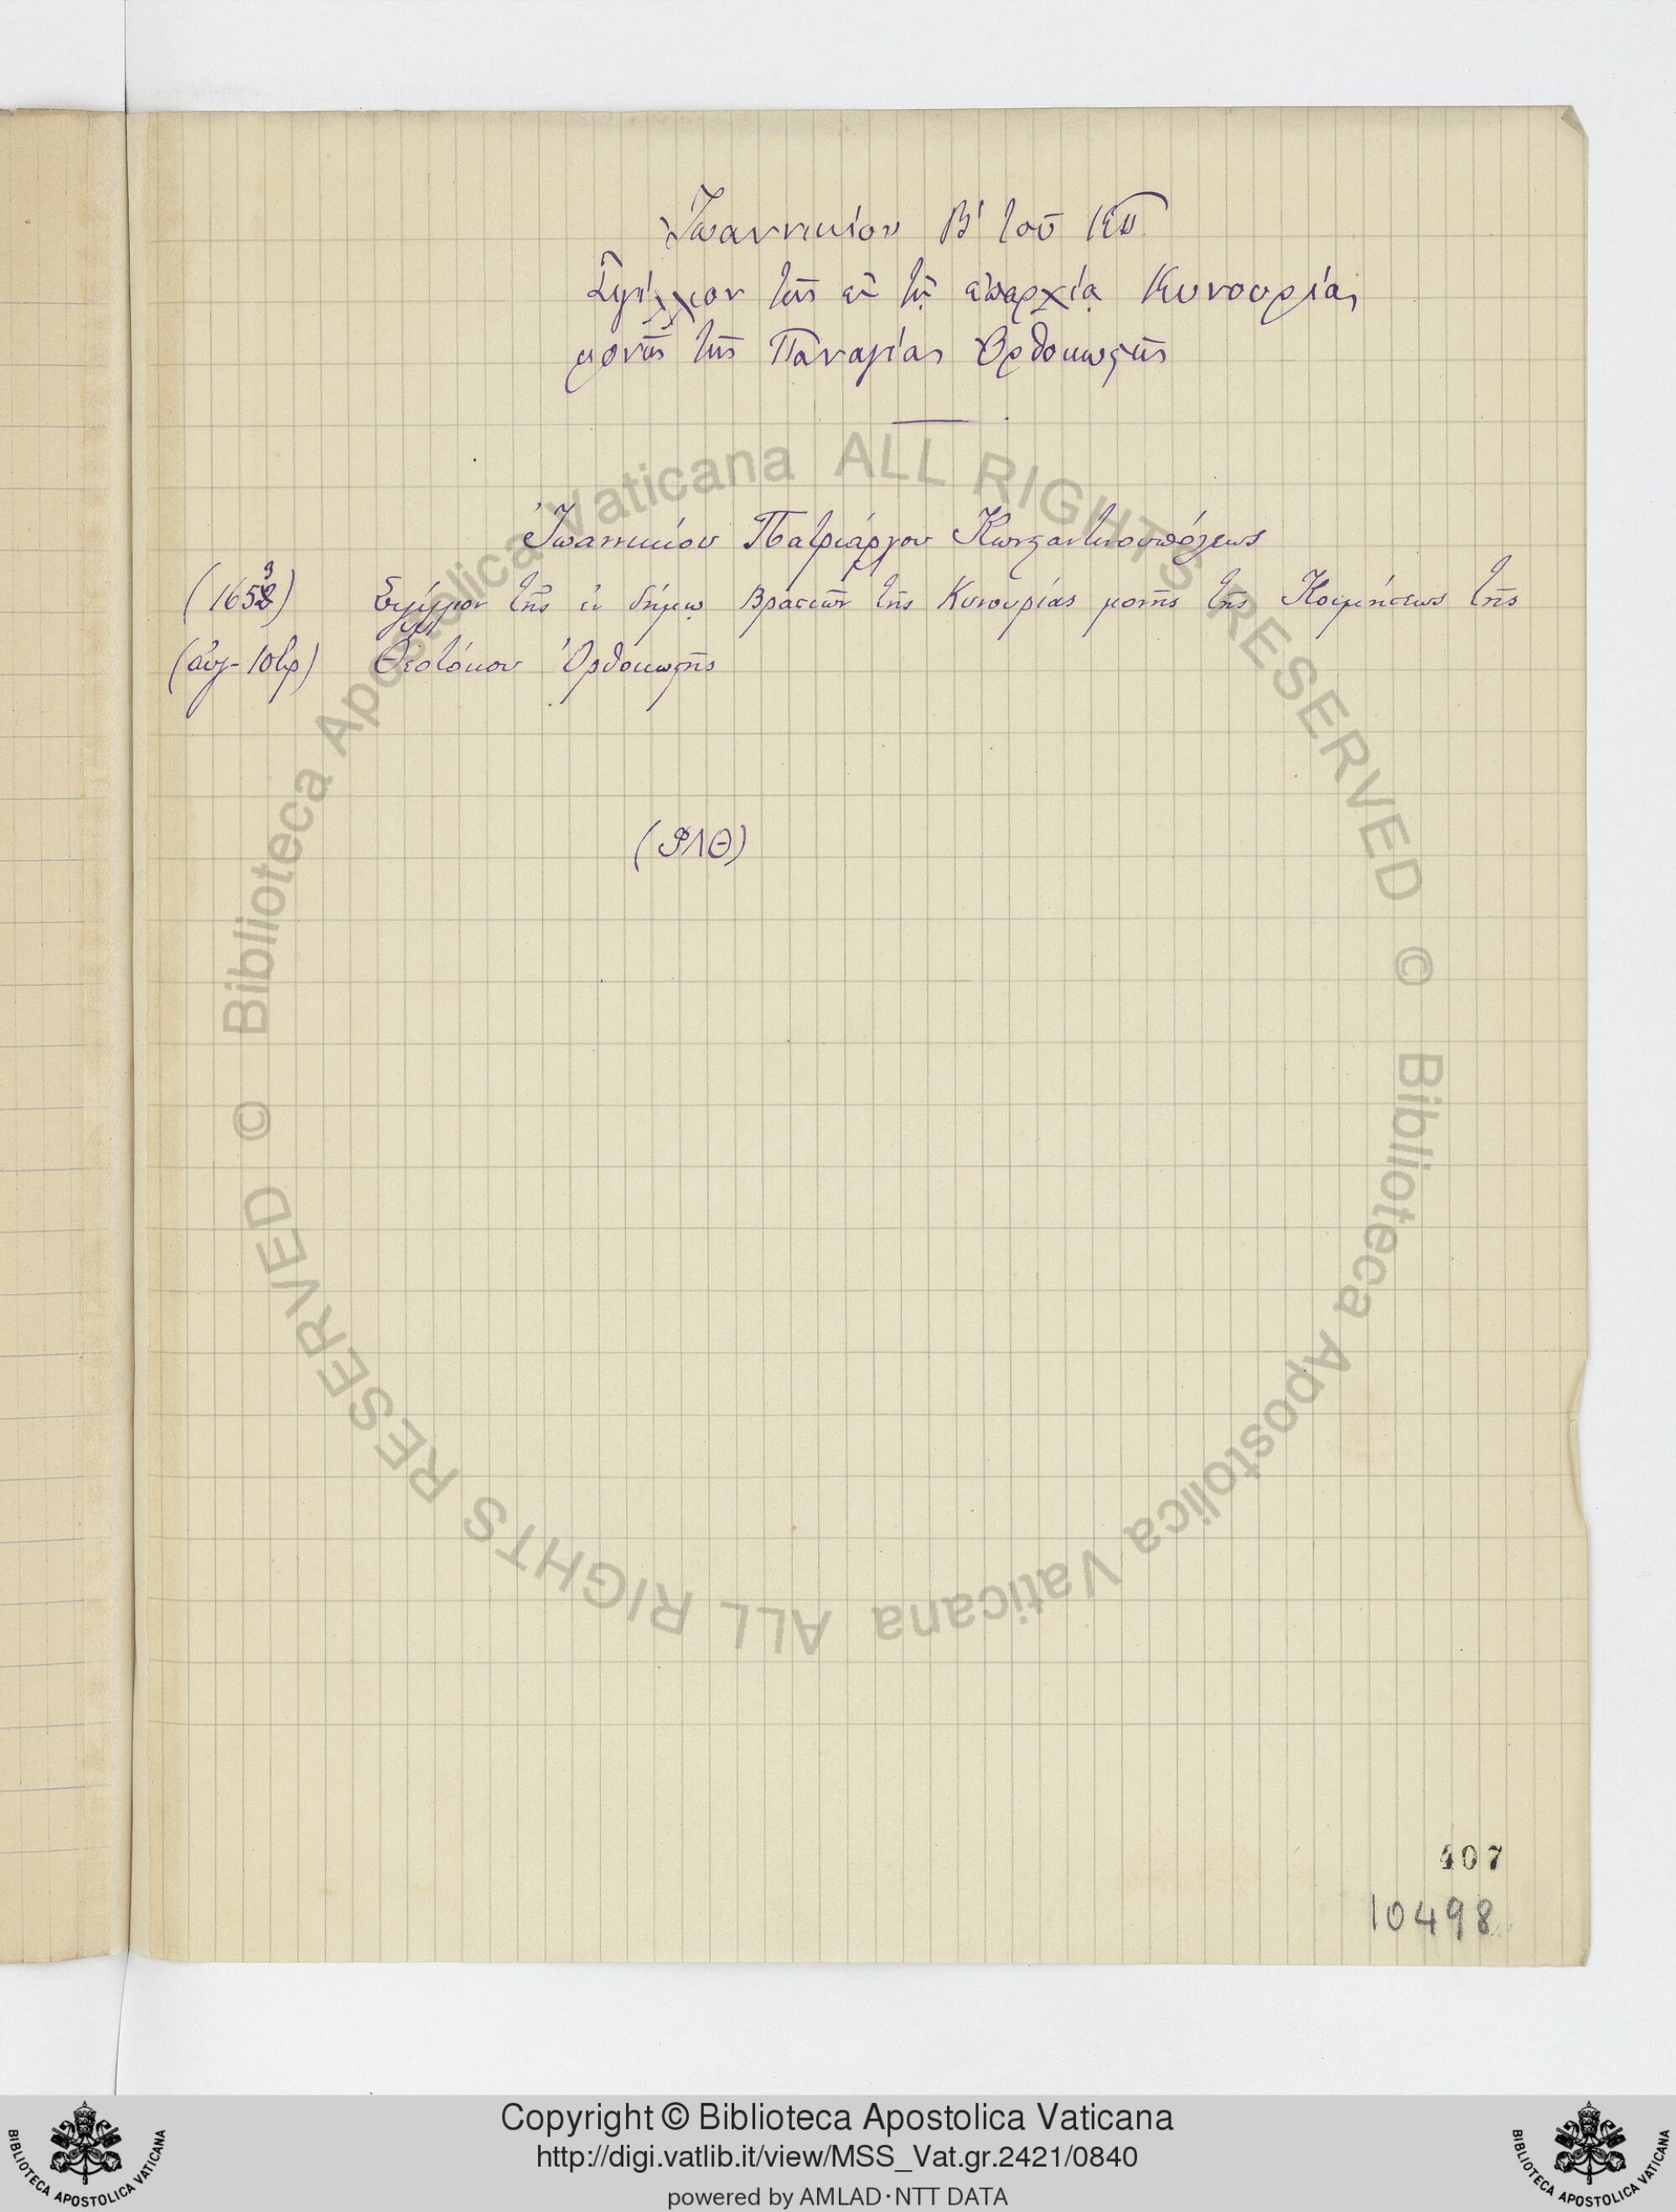 Ἰωαννικίου Β΄ τοῦ ΚΠ
Σιγίλλιον τῆς ἐν τῇ ἐπαρχίᾳ Κυνουρίας
μονῆς τῆς Παναγίας Ὀρθοκωστῆς
Ἰωαννικίου Πατριάρχου Κωνσταντινουπόλεως
(1653) Σιγίλλιον τῆς ἐν δήμῳ Βρασιῶν τῆς Κυνουρίας μονῆς τῆς Κοιμήσεως τῆς
Θεοτόκου Ὀρθοκωστῆς
(ΡΛΘ)
407
10498
© Biblioteca Apostolica Vaticana ALL RIGHTS RESERVED
© Biblioteca Apostolica Vaticana ALL RIGHTS RESERVED
Copyright © Biblioteca Apostolica Vaticana
http://digi.vatlib.it/view/MSS_Vat.gr.2421/0840
powered by AMLAD·NTT DATA
BIBLIOTECA APOSTOLICA VATICANA
BIBLIOTECA APOSTOLICA VATICANA